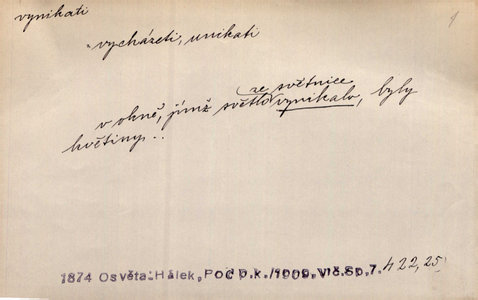 vynikati
vycházeti, unikati
ze světnice
v okně, jímž světlo vynikalo, byly
květiny..
1874 Osvěta: Hálek, Pod p.k./1909, Vlč.Sp.7. 422,25